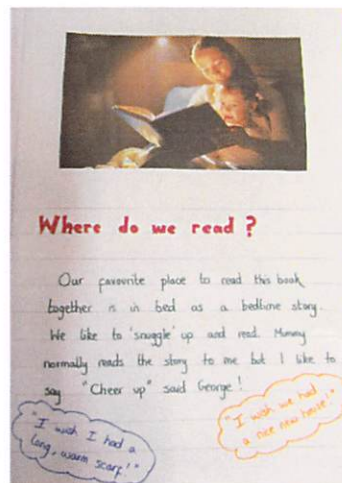 Where do we read?
Our favourite place to read this book
together is in bed as a bedtime story.
We like to 'snuggle' up and read. Mummy
normally reads the story to me but I like to
say "Cheer up" said George!
"I wish I had a
long, warm scarf!"
"I wish we had
a nice new house!"